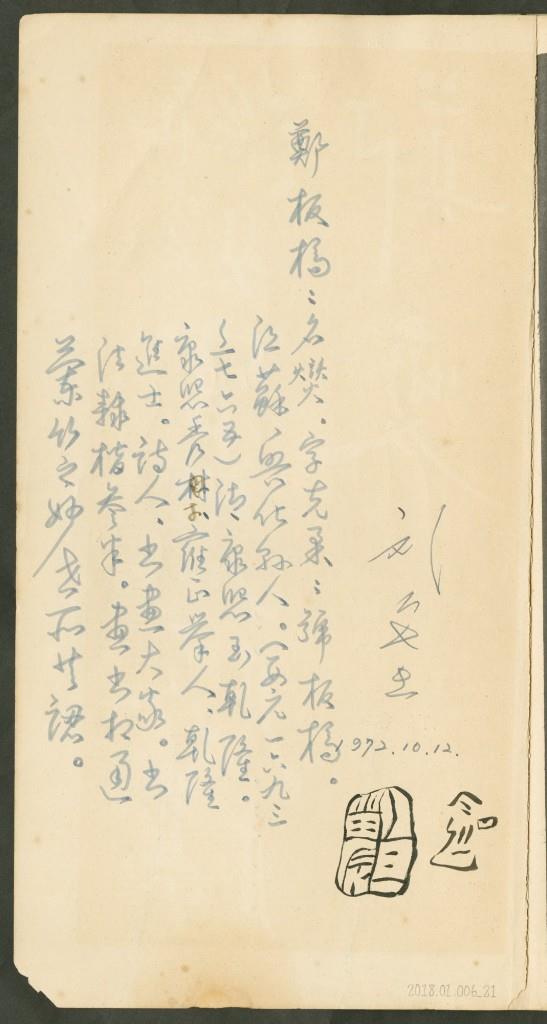 鄭板橋:名燮。字克柔:號板橋。
江蘇興化縣人。(西元一六九三
至七六五)清、康熙至乾隆。
康熙秀才、雍正舉人、乾隆
進士。詩人、書畫大家。書
法隸楷參半。畫書相通
蘭竹之妙老所共認。
1972.10.12.
2018.01.006_21